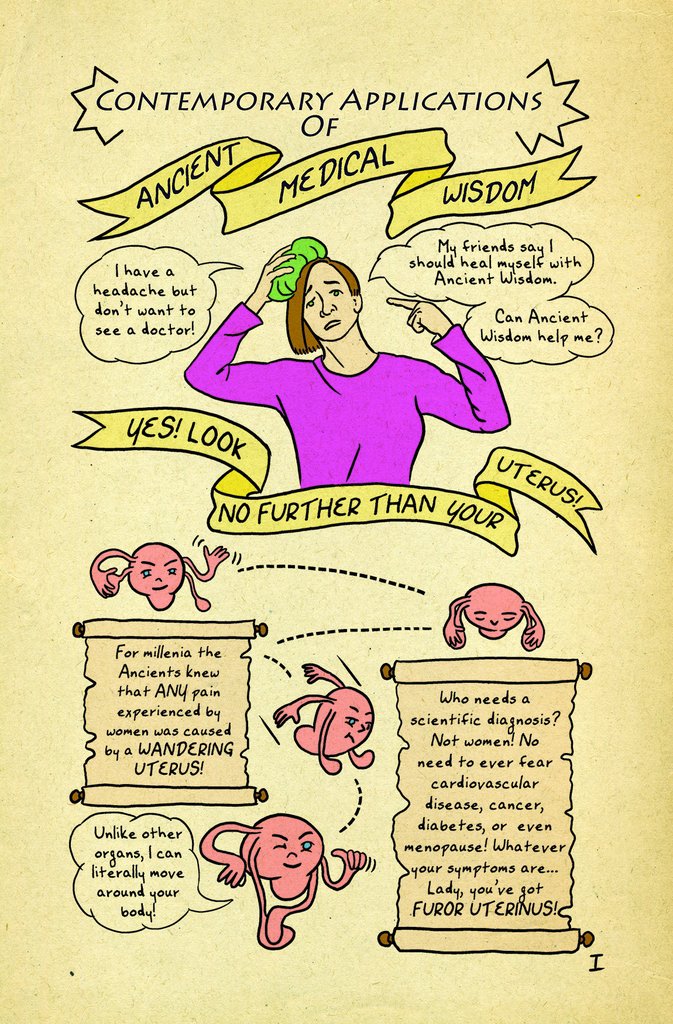 CONTEMPORARY APPLICATIONS
OF
ANCIENT
MEDICAL
WISDOM
I have a
headache but
don't want to
see a doctor!
My friends say I
should heal myself with
Ancient Wisdom.
Can Ancient
Wisdom help me?
YES! LOOK
NO FURTHER THAN YOUR
UTERUS!
For millenia the
Ancients knew
that ANY pain
experienced by
women was caused
by a WANDERING
UTERUS!
Who needs a
scientific diagnosis?
Not women! No
need to ever fear
cardiovascular
disease, cancer,
diabetes, or even
menopause! Whatever
your symptoms are...
Lady, you've got
FUROR UTERINUS!
Unlike other
organs, I can
literally move
around your
body!
I